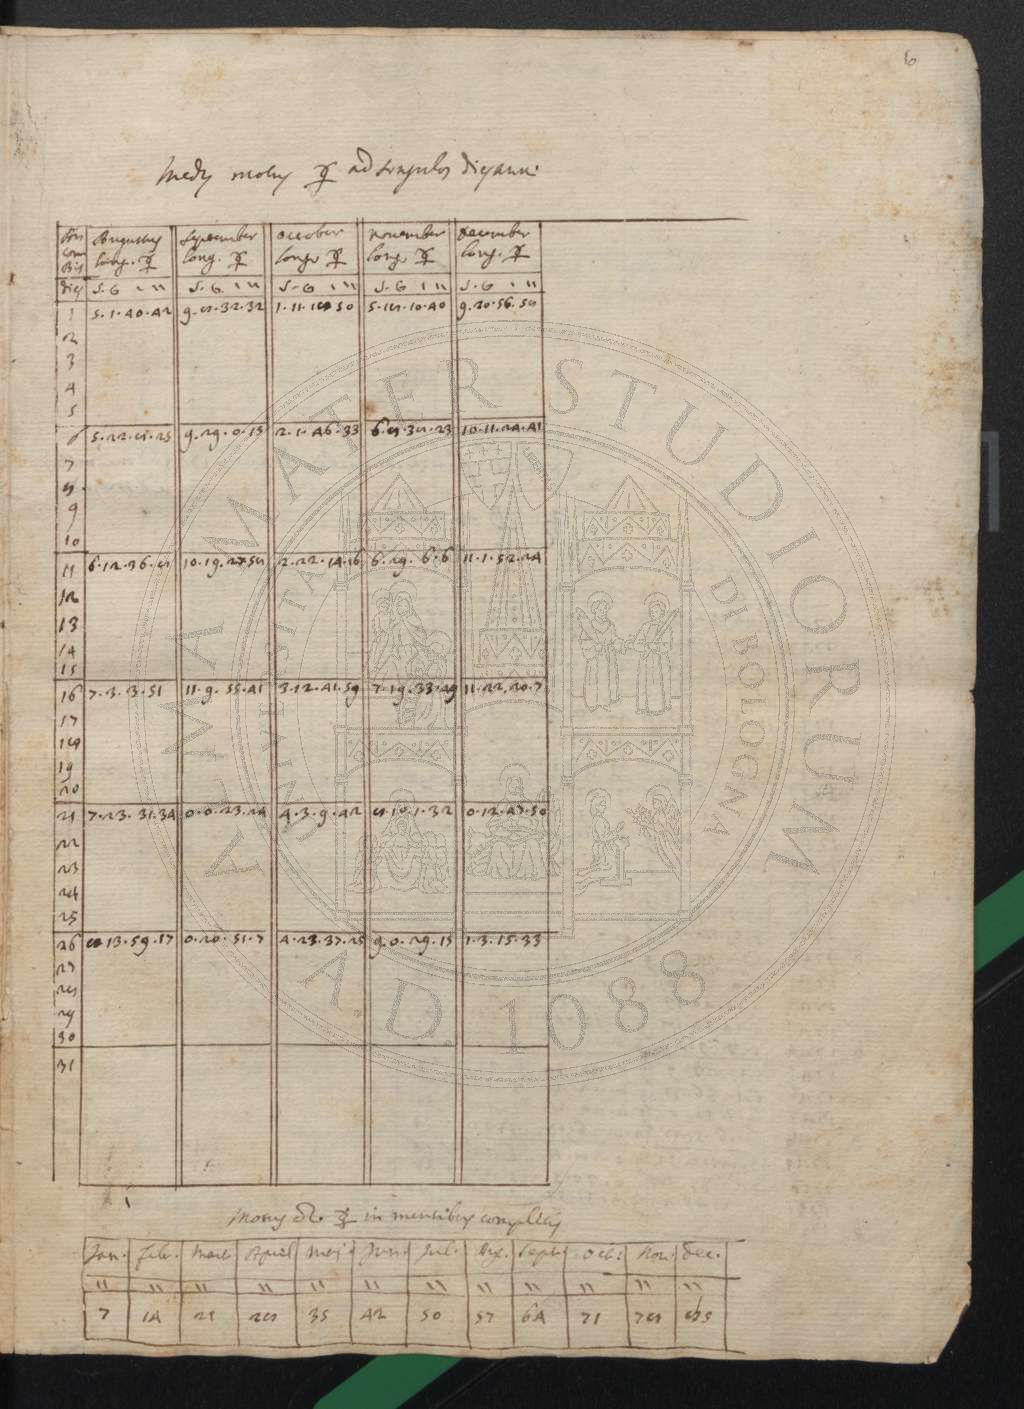 6
Medy motuy ☿ ad singulos dies anni
Augustus September October November December
long. ☿ long. ☿ long. ☿ long. ☿ long. ☿
dies S. G ' '' S. G ' '' S. G ' '' S. G ' '' S. G ' ''
1 5.1.40.42 9.8.32.32 1.11.18.50 5.18.10.40 9.20.56.58
2
3
4
5
6 5.22.8.25 9.29.0.15 2.1.46.33 6.8.38.23 10.11.24.41
7
8
9
10
11 6.12.36.8 10.19.27.58 2.22.14.16 6.29.6.6 11.1.52.24
12
13
14
15
16 7.3.3.51 11.9.55.41 3.12.41.59 7.19.33.49 11.22.20.7
17
18
19
20
21 7.23.31.34 0.0.23.24 4.3.9.42 8.10.1.32 0.12.47.50
22
23
24
25
26 8.13.59.17 0.20.51.7 4.23.37.25 9.0.29.15 1.3.15.33
27
28
29
30
31
Motuy ☿ in mensibus completis
Jan. Feb. Mart. April Maj. Jun. Jul. Aug. Sept. Oct. Nov. Dec.
'' '' '' '' '' '' '' '' '' '' '' ''
7 14 21 28 35 42 50 57 64 71 78 85
ALMA MATER STUDIORUM
UNIVERSITA DI BOLOGNA
A.D. 1088